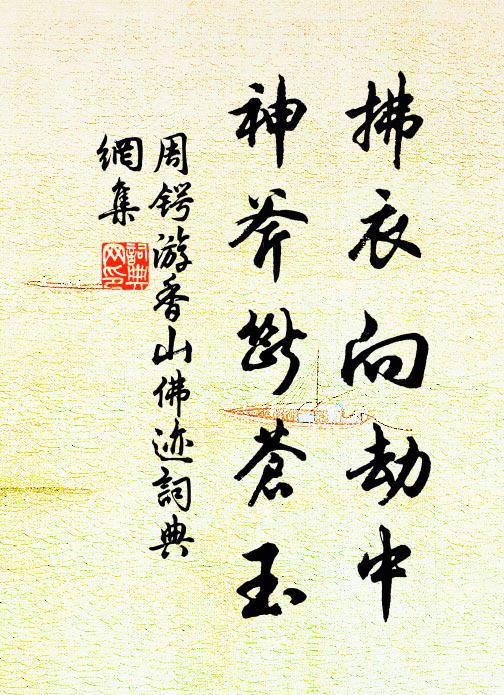 拂衣向劫中
神斧斷蒼玉
周锷游香山佛迹詞典
網集
詞典
网印